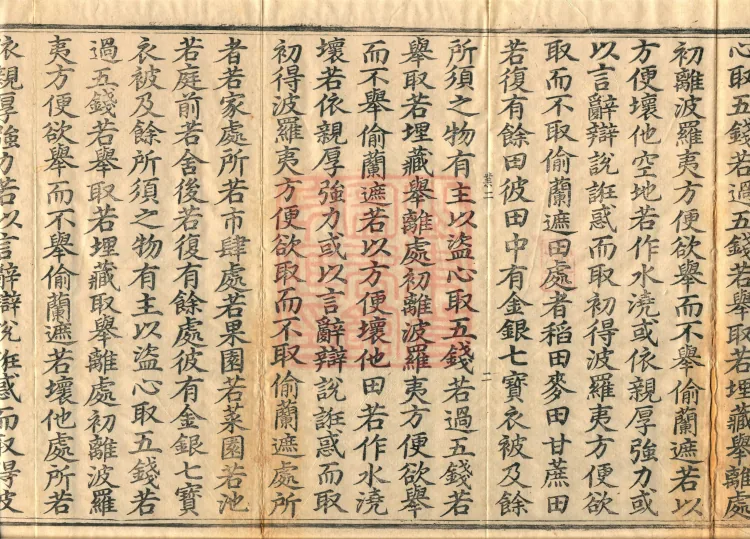 心取五錢若過五錢若舉取若埋藏舉離處
初離波羅夷方便欲舉而不舉偷蘭遮若以
方便壞他空地若作水澆或依親厚強力或
以言辭辯說誑惑而取初得波羅夷方便欲
取而不取偷蘭遮田處者稻田麥田甘蔗田
若復有餘田彼田中有金銀七寶衣被及餘
業二
二
所須之物有主以盜心取五錢若過五錢若
舉取若埋藏舉離處初離波羅夷方便欲舉
而不舉偷蘭遮若以方便壞他田若作水澆
壞若依親厚強力或以言辭辯說誑惑而取
初得波羅夷方便欲取而不取偷蘭遮處所
者若家處所若市肆處若果園若菜園若池
若庭前若舍後若復有餘處彼有金銀七寶
衣被及餘所須之物有主以盜心取五錢若
過五錢若舉取若埋藏取舉離處初離波羅
夷方便欲舉而不舉偷蘭遮若壞他處所若
依親厚強力若以言辭辯說誑惑而取得波